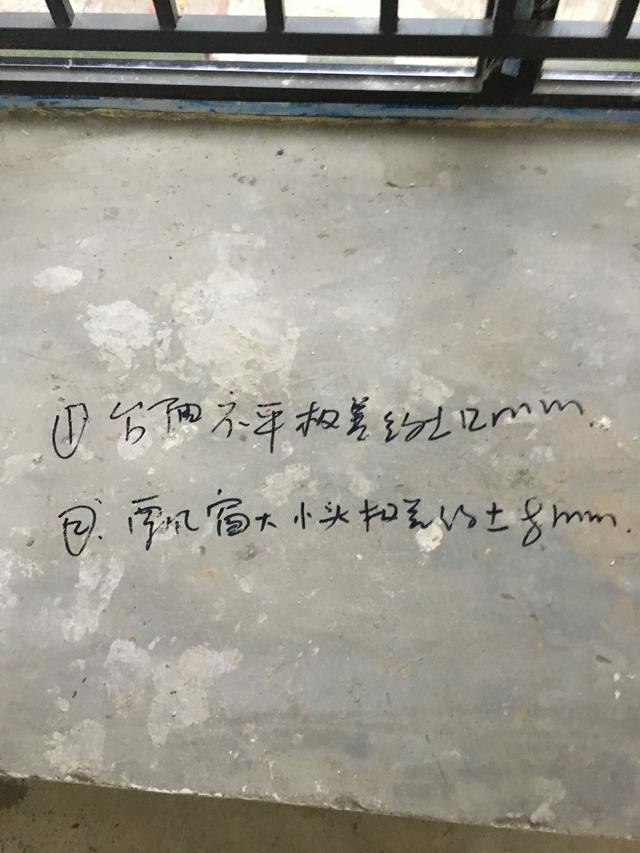 ① 台面不平极差约±12mm.
②. 窗大小头极差约±8mm.